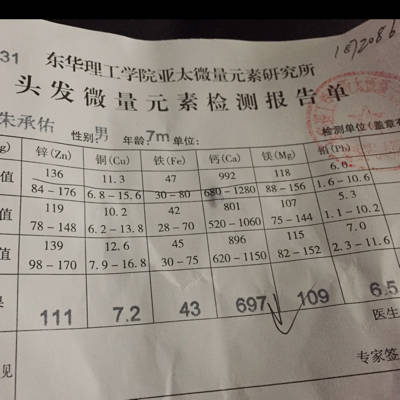 31 东华理工学院亚太微量元素研究所
1872086
头发微量元素检测报告单
朱承佑 性别:男 年龄:7m 单位: 检测单位(盖章有
g) 锌(Zn) 铜(Cu) 铁(Fe) 钙(Ca) 镁(Mg) 铅(Pb)
值 136 11.3 47 992 118 6.0
84-176 6.8-15.6 30-80 680-1280 88-156 1.6-10.6
值 119 10.2 42 801 107 5.3
78-148 6.2-13.8 28-70 520-1060 75-144 1.1-10.2
值 139 12.6 45 896 115 7.0
98-170 7.9-16.8 30-75 620-1150 82-152 2.3-11.6
果 111 7.2 43 697 109 6.5
医生
见 专家签